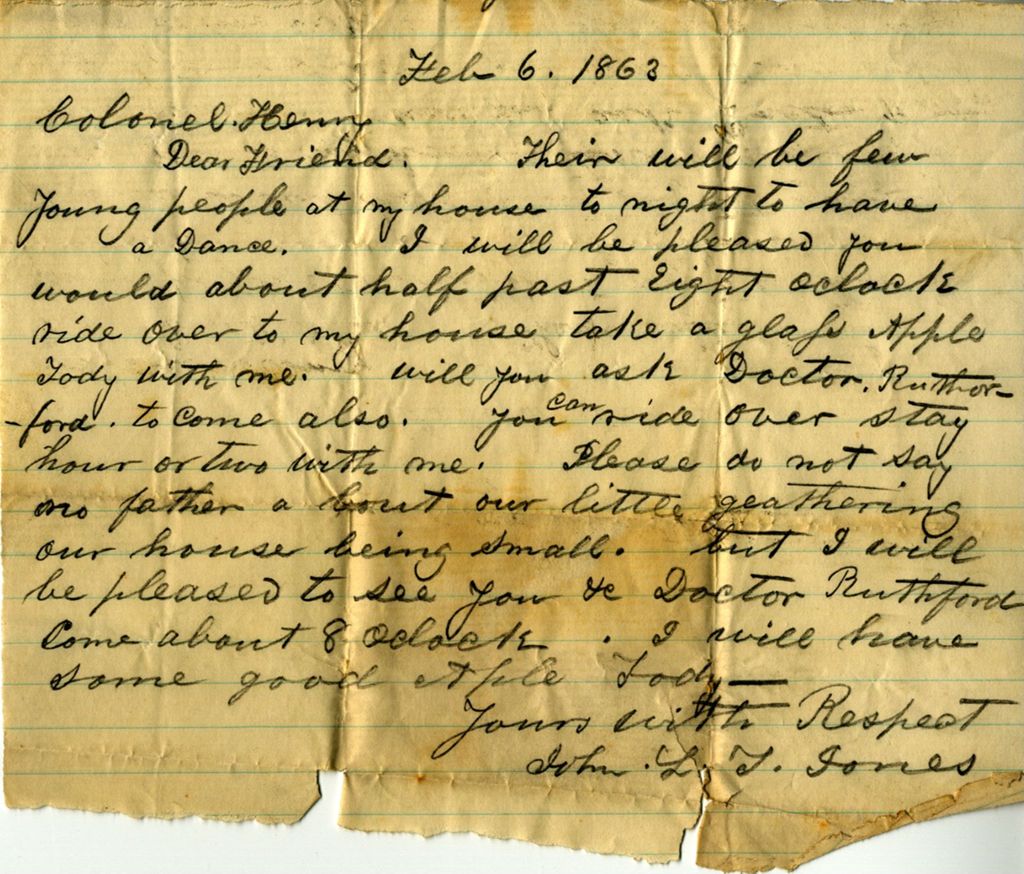 Feb 6. 1863
Colonel. Henry
Dear Friend. Their will be few
Young people at my house to night to have
a Dance. I will be pleased you
would about half past Eight oclock
ride over to my house take a glass Apple
Tody with me. will you ask Doctor. Ruthor-
-ford. to come also. you can ride over stay
hour or two with me. Please do not say
no father a bout our little geathering
our house being small. but I will
be pleased to see you & Doctor Ruthford
Come about 8 oclock . I will have
some good Aple Tody —
Yours with Respect
John. L. T. Jones